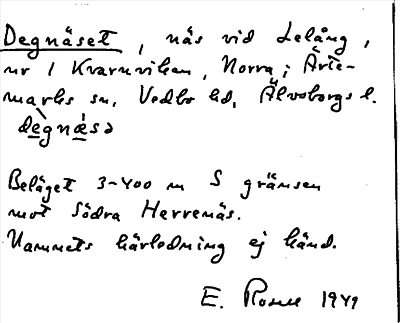 Degnäset, näs vid Lelång,
nr 1 Kvarnviken, Norra, i Ärte-
marks sn, Vedbo hd, Älvsborgs l.
dègnǽsə
Beläget 3-400 m S gränsen
mot Södra Herrenäs.
Namnets härledning ej känd.
E. 1949